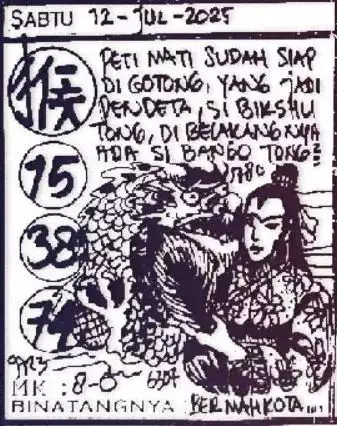 SABTU 12-JUL-2025
猴
PETI MATI SUDAH SIAP
DI GOTONG, YANG JADI
PENDETA, SI BIKSHU
TONG, DI BELAKANGNYA
ADA SI BANGO TONG2
15
38
74
9723
6307
MK : 8-0
BINATANGNYA : BERMAHKOTA...